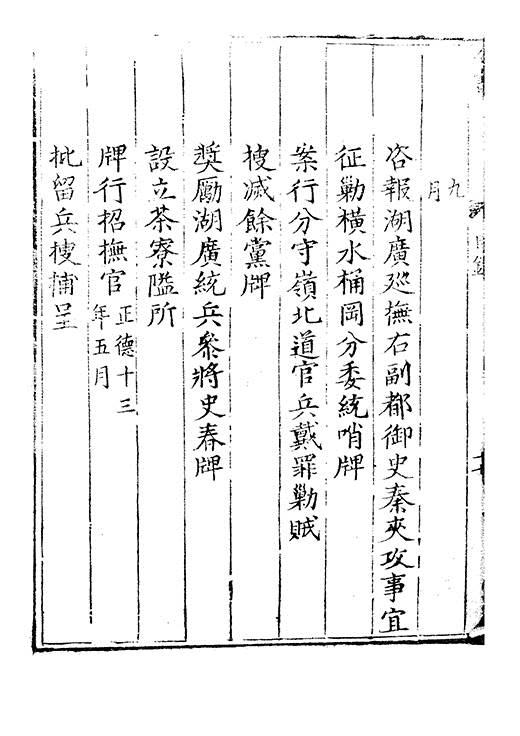 九月
咨報湖廣廵撫右副都御史秦夾攻事宜
征勦橫水桶岡分委統哨牌
案行分守嶺北道官兵戴罪勦賊
搜滅餘黨牌
奬勵湖廣統兵叅將史春牌
設立茶寮隘所
牌行招撫官正德十三年五月
批留兵搜捕呈
目錄